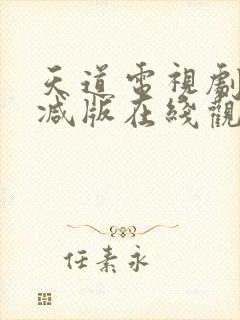 天道電視劇
減版在綫觀
任素永